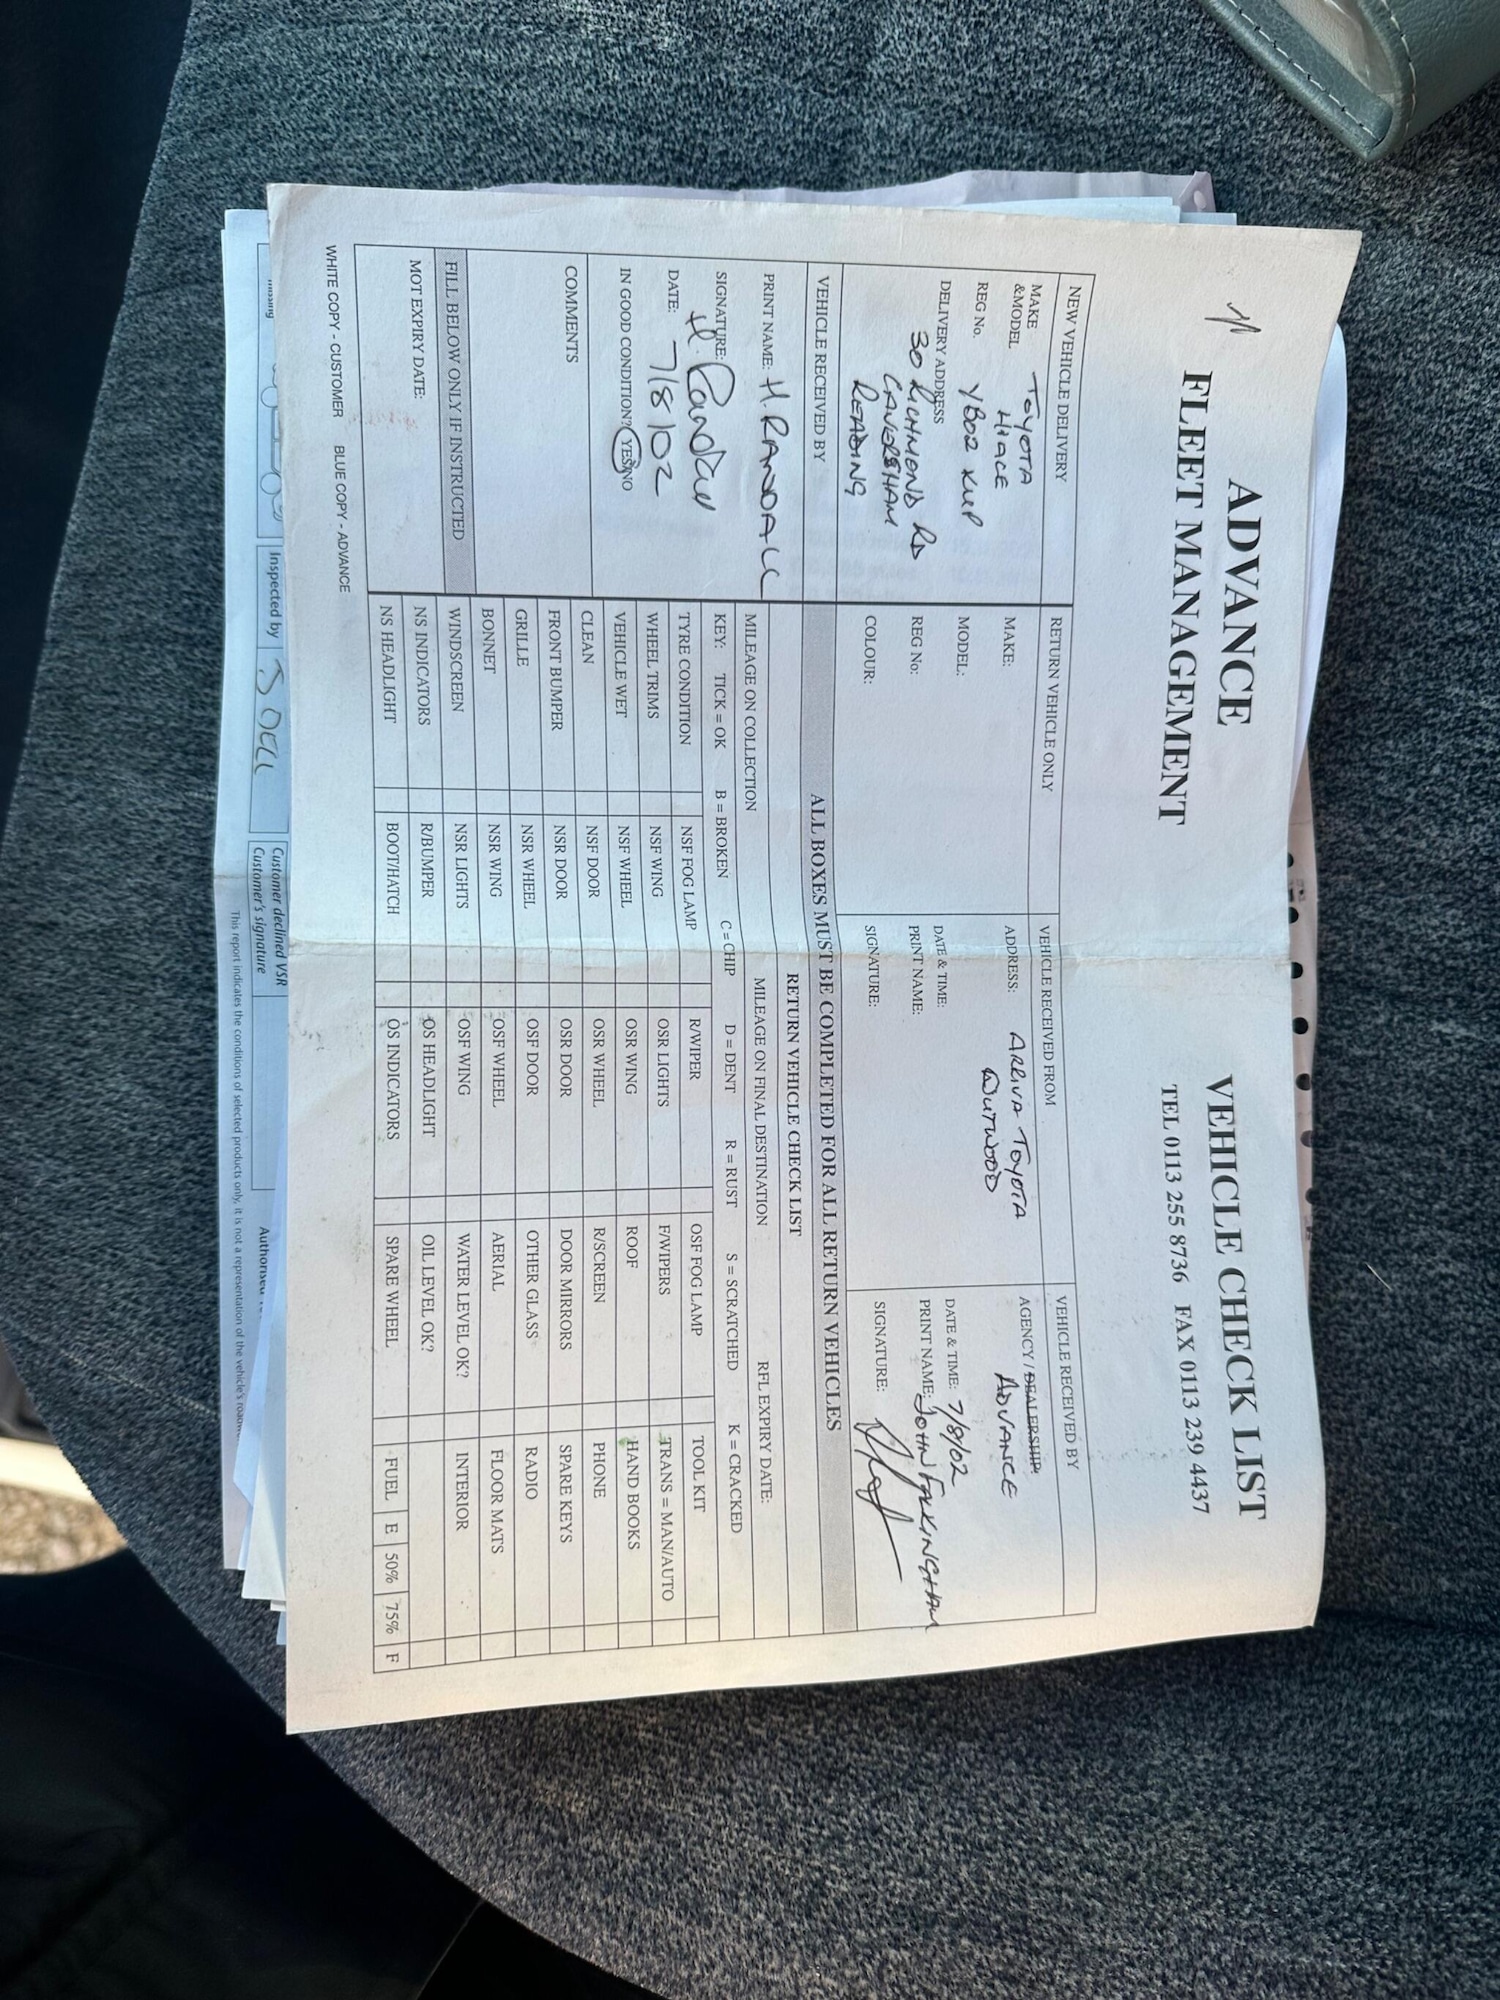 ADVANCE
FLEET MANAGEMENT
VEHICLE CHECK LIST
TEL 0113 255 8736 FAX 0113 239 4437
NEW VEHICLE DELIVERY
MAKE &MODEL TOYOTA HIACE
REG No. YB02 XUP
DELIVERY ADDRESS
30 RICHMOND RD
CAVERSHAM
READING
RETURN VEHICLE ONLY
MAKE:
MODEL:
REG No:
COLOUR:
VEHICLE RECEIVED FROM
ADDRESS: ARRIVA TOYOTA
OUTWOOD
DATE & TIME:
PRINT NAME:
SIGNATURE:
VEHICLE RECEIVED BY
AGENCY / DEALERSHIP:
ADVANCE
DATE & TIME: 7/8/02
PRINT NAME: JOHN
SIGNATURE:
VEHICLE RECEIVED BY
PRINT NAME: H. RANDALL
SIGNATURE: H. Randall
DATE: 7/8/02
IN GOOD CONDITION? YES/NO
COMMENTS
FILL BELOW ONLY IF INSTRUCTED
MOT EXPIRY DATE:
ALL BOXES MUST BE COMPLETED FOR ALL RETURN VEHICLES
RETURN VEHICLE CHECK LIST
MILEAGE ON COLLECTION MILEAGE ON FINAL DESTINATION RFL EXPIRY DATE:
KEY: TICK = OK B = BROKEN C = CHIP D = DENT R = RUST S = SCRATCHED K = CRACKED
TYRE CONDITION NSF FOG LAMP R/WIPER OSF FOG LAMP TOOL KIT
WHEEL TRIMS NSF WING OSR LIGHTS F/WIPERS TRANS = MAN/AUTO
VEHICLE WET NSF WHEEL OSR WING ROOF HAND BOOKS
CLEAN NSF DOOR OSR WHEEL R/SCREEN PHONE
FRONT BUMPER NSR DOOR OSR DOOR DOOR MIRRORS SPARE KEYS
GRILLE NSR WHEEL OSF DOOR OTHER GLASS RADIO
BONNET NSR WING OSF WHEEL AERIAL FLOOR MATS
WINDSCREEN NSR LIGHTS OSF WING WATER LEVEL OK? INTERIOR
NS INDICATORS R/BUMPER OS HEADLIGHT OIL LEVEL OK?
NS HEADLIGHT BOOT/HATCH OS INDICATORS SPARE WHEEL FUEL E 50% 75% F
WHITE COPY - CUSTOMER BLUE COPY - ADVANCE
missing
Inspected by
Customer declined VSR
Customer's signature
This report indicates the conditions of selected products only, it is not a representation of the vehicle's